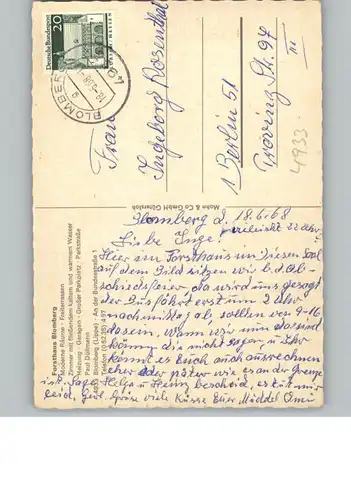 Deutsche Bundespost
20
BLOMBERG
Frau
Ingeborg Rosenthal
1 Berlin 51
Provinz Str. 97
III
4933
Mohn & Co GmbH Gütersloh
Forsthaus Blomberg
Moderne Räume · Freiterrassen
Zimmer mit fließendem kaltem und warmem Wasser
Heizung · Garagen · Großer Parkplatz · Parkstraße
Paul Düllmann
4933 Blomberg (Lippe) · An der Bundesstraße 1
Telefon (05235) 497
Blomberg d. 18.6.68
Liebe Inge! vielleicht 22 Uhr
Hier im Forsthaus in diesen Saal
auf dem Bild sitzen wir b.d. Ab-
schiedsfeier, da wird uns gesagt
der Bus fährt erst um 2 Uhr
nachmittag ab, sollen von 9-16
da sein. Wann wir nun da sind
können die nicht sagen, 2 Uhr
könnt Ihr Euch auch ausrechnen
eher oder später wie es an der Grenze
ist. Sage Helga u. Heinz bescheid, es tut mir
leid, Grüße viele Küsse Eure Omi